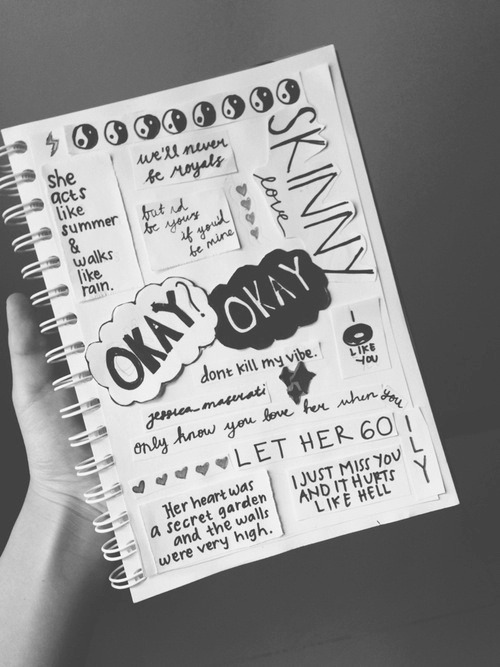 she
acts
like
summer
&
walks
like
rain.
we'll never
be royals
but id
be yours
if you'd
be mine
SKINNY
love
OKAY!
OKAY
I
LIKE
YOU
dont kill my vibe.
jessica maserati
only know you love her when you
LET HER GO
ILY
Her heart was
a secret garden
and the walls
were very high.
I JUST MISS YOU
AND IT HURTS
LIKE HELL